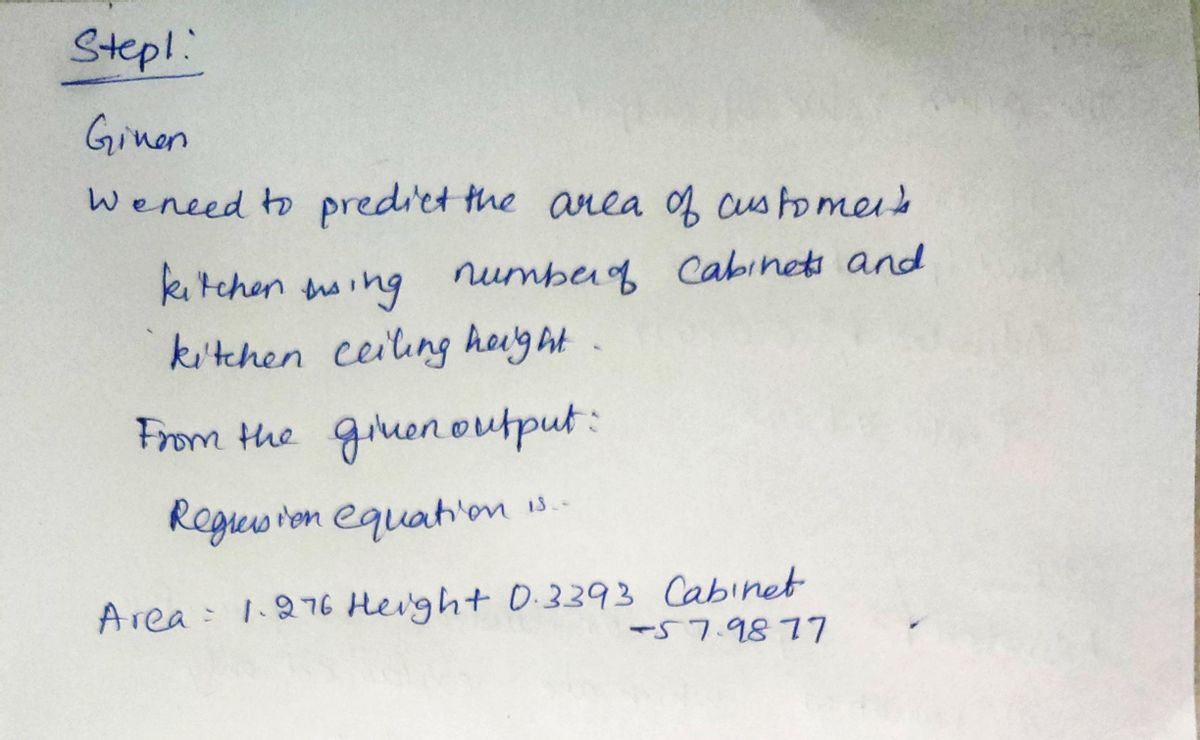 Step1:
Given
We need to predict the area of customer's
kitchen using number of Cabinets and
kitchen ceiling height.
From the given output:
Regression equation is..
Area = 1.276 Height + 0.3393 Cabinet
-57.9877